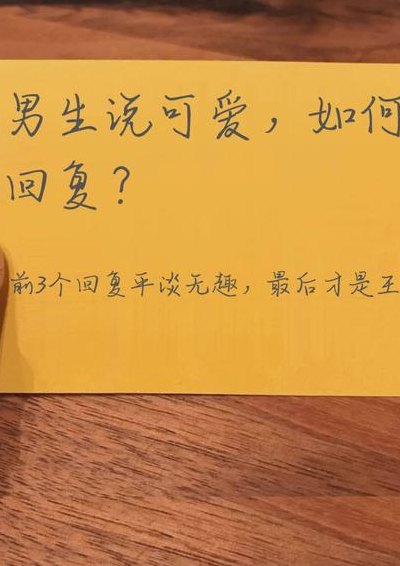 男生说可爱，如何
回复？
前3个回复平淡无趣，最后才是王